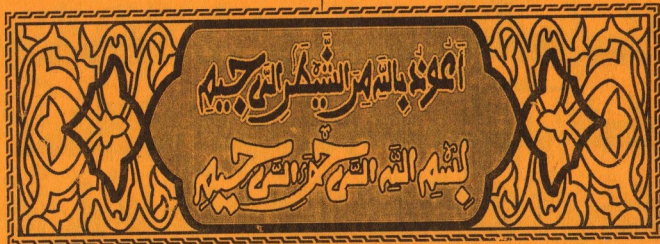 أعوذ بالله من الشيطن الرجيم
بسم الله الرحمن الرحيم